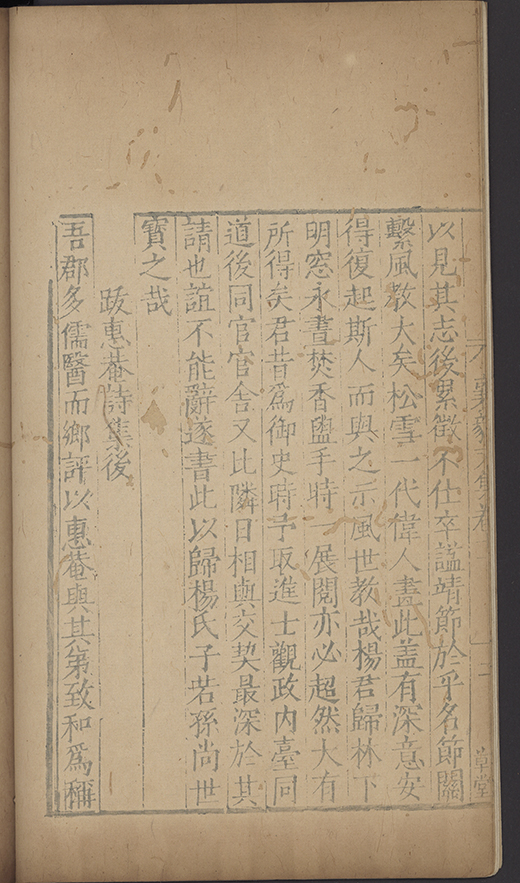 以見其志後累徵不仕卒諡靖節於乎名節關
繫風教大矣松雪一代偉人畫此盖有深意安
得復起斯人而與之示風世教哉楊君歸林下
明窓永晝焚香盥手時一展閱亦必超然大有
所得矣君昔爲御史時予取進士觀政内臺同
道後同官官舎又比隣日相與交契最深於其
請也誼不能辭遂書此以歸楊氏子若孫尚世
寳之哉
跋惠菴詩集後
吾郡多儒醫而鄉評以惠菴與其弟致和爲稱
草堂